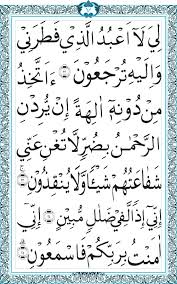 لِيَ لَآ اَعْبُدُ الَّذِي فَطَرَنِي
وَاِلَيْهِ تُرْجَعُونَ ءَاَتَّخِذُ
مِنْ دُونِهٖٓ اٰلِهَةً اِنْ يُرِدْنِ
الرَّحْمٰنُ بِضُرٍّ لَا تُغْنِ عَنِّي
شَفَاعَتُهُمْ شَيْـًٔا وَلَا يُنْقِذُونِ
اِنِّٓي اِذًا لَفِي ضَلَالٍ مُبِينٍ اِنِّٓي
اٰمَنْتُ بِرَبِّكُمْ فَاسْمَعُونِ